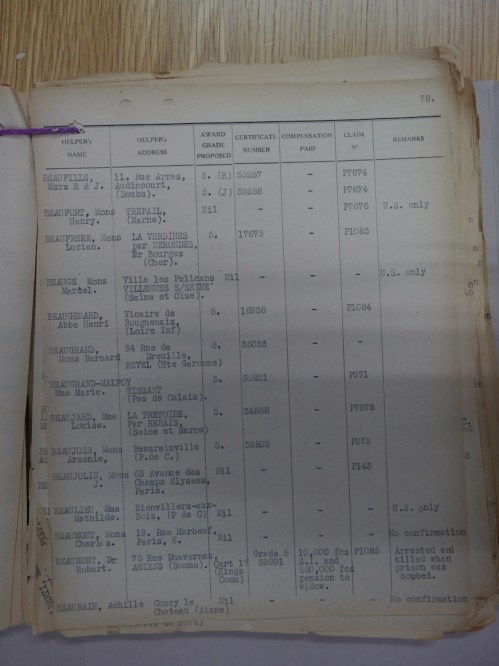 78.
HELPER'S NAME HELPER'S ADDRESS AWARD GRADE PROPOSED CERTIFICATE NUMBER COMPENSATION PAID CLAIM Nº REMARKS
BEAUFILLS, 11. Rue Arras, 5. (R) 33287 - P7674
Mars R & J. Audincourt,
(Doubs). 5. (J) 33286 - P7674
BEAUFORT, Mons TREPAIL, Nil - - P7676 U.S. only
Henry. (Marne).
BEAUFRERE, Mons LA VERDINES 5. 17675 - P1083
Lucien. par
Nr Bourges
(Cher).
BEAUGE Mons Ville les Pelicans Nil - - - U.S. only
Marcel. VILLENNES S/SEINE
(Seine et Oise).
BEAUGENARD, Vicaire de 5. 16938 - P1084
Abbe Henri Bouguenais,
(Loire Inf)
BEAUGRAND, 54 Rue de 5. 33033 - -
Mons Bernard Dreuille,
REVEL (Hte Garonne)
BEAUGRAND-MALFOY 5. - P271
Mme Marie. TISSAUT
(Pas de Calais).
BEAUJARD, Mme LA TRETOIRE, 5. 34888 - P7678
Louise. Par REBAIS,
(Seine et Marne)
BEAUJOIS, Mons Beaurainville 5. - P272
Arsenie, (P.de C.)
BEAUJOLIN, Mons 63 Avenue des Nil - - P143
J. Champs Elysees,
Paris.
BEAULIEU, Mme Rienvillers-aux- - - - U.S. only
Mathilde. Bois, (P de C) Nil
BEAUMONT, Mons 19. Rue Marbeuf, Nil - - - No confirmation
Charles. Paris, 8.
BEAUMONT, Dr 73 Rue Dhavernas, Grade 5 10,000 fcs P1085 Arrested and
Robert. AMIENS (Somme). Cert 17 32991 a.i. and killed when
(Kings 250,000 fcs prison was
Comm) pension to bombed.
widow.
BEAURAIN, Achille Coucy le Nil - - - No confirmation
Chateau (Aisne)